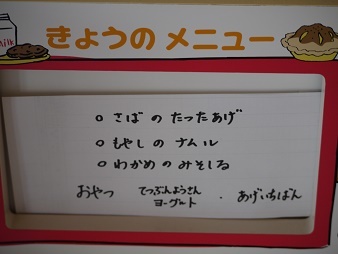 Milk
きょうの メニュー
○ さばの たったあげ
○ もやしの ナムル
○ わかめの みそしる
おやつ てつぶんようさん ヨーグルト ・ あげいちばん